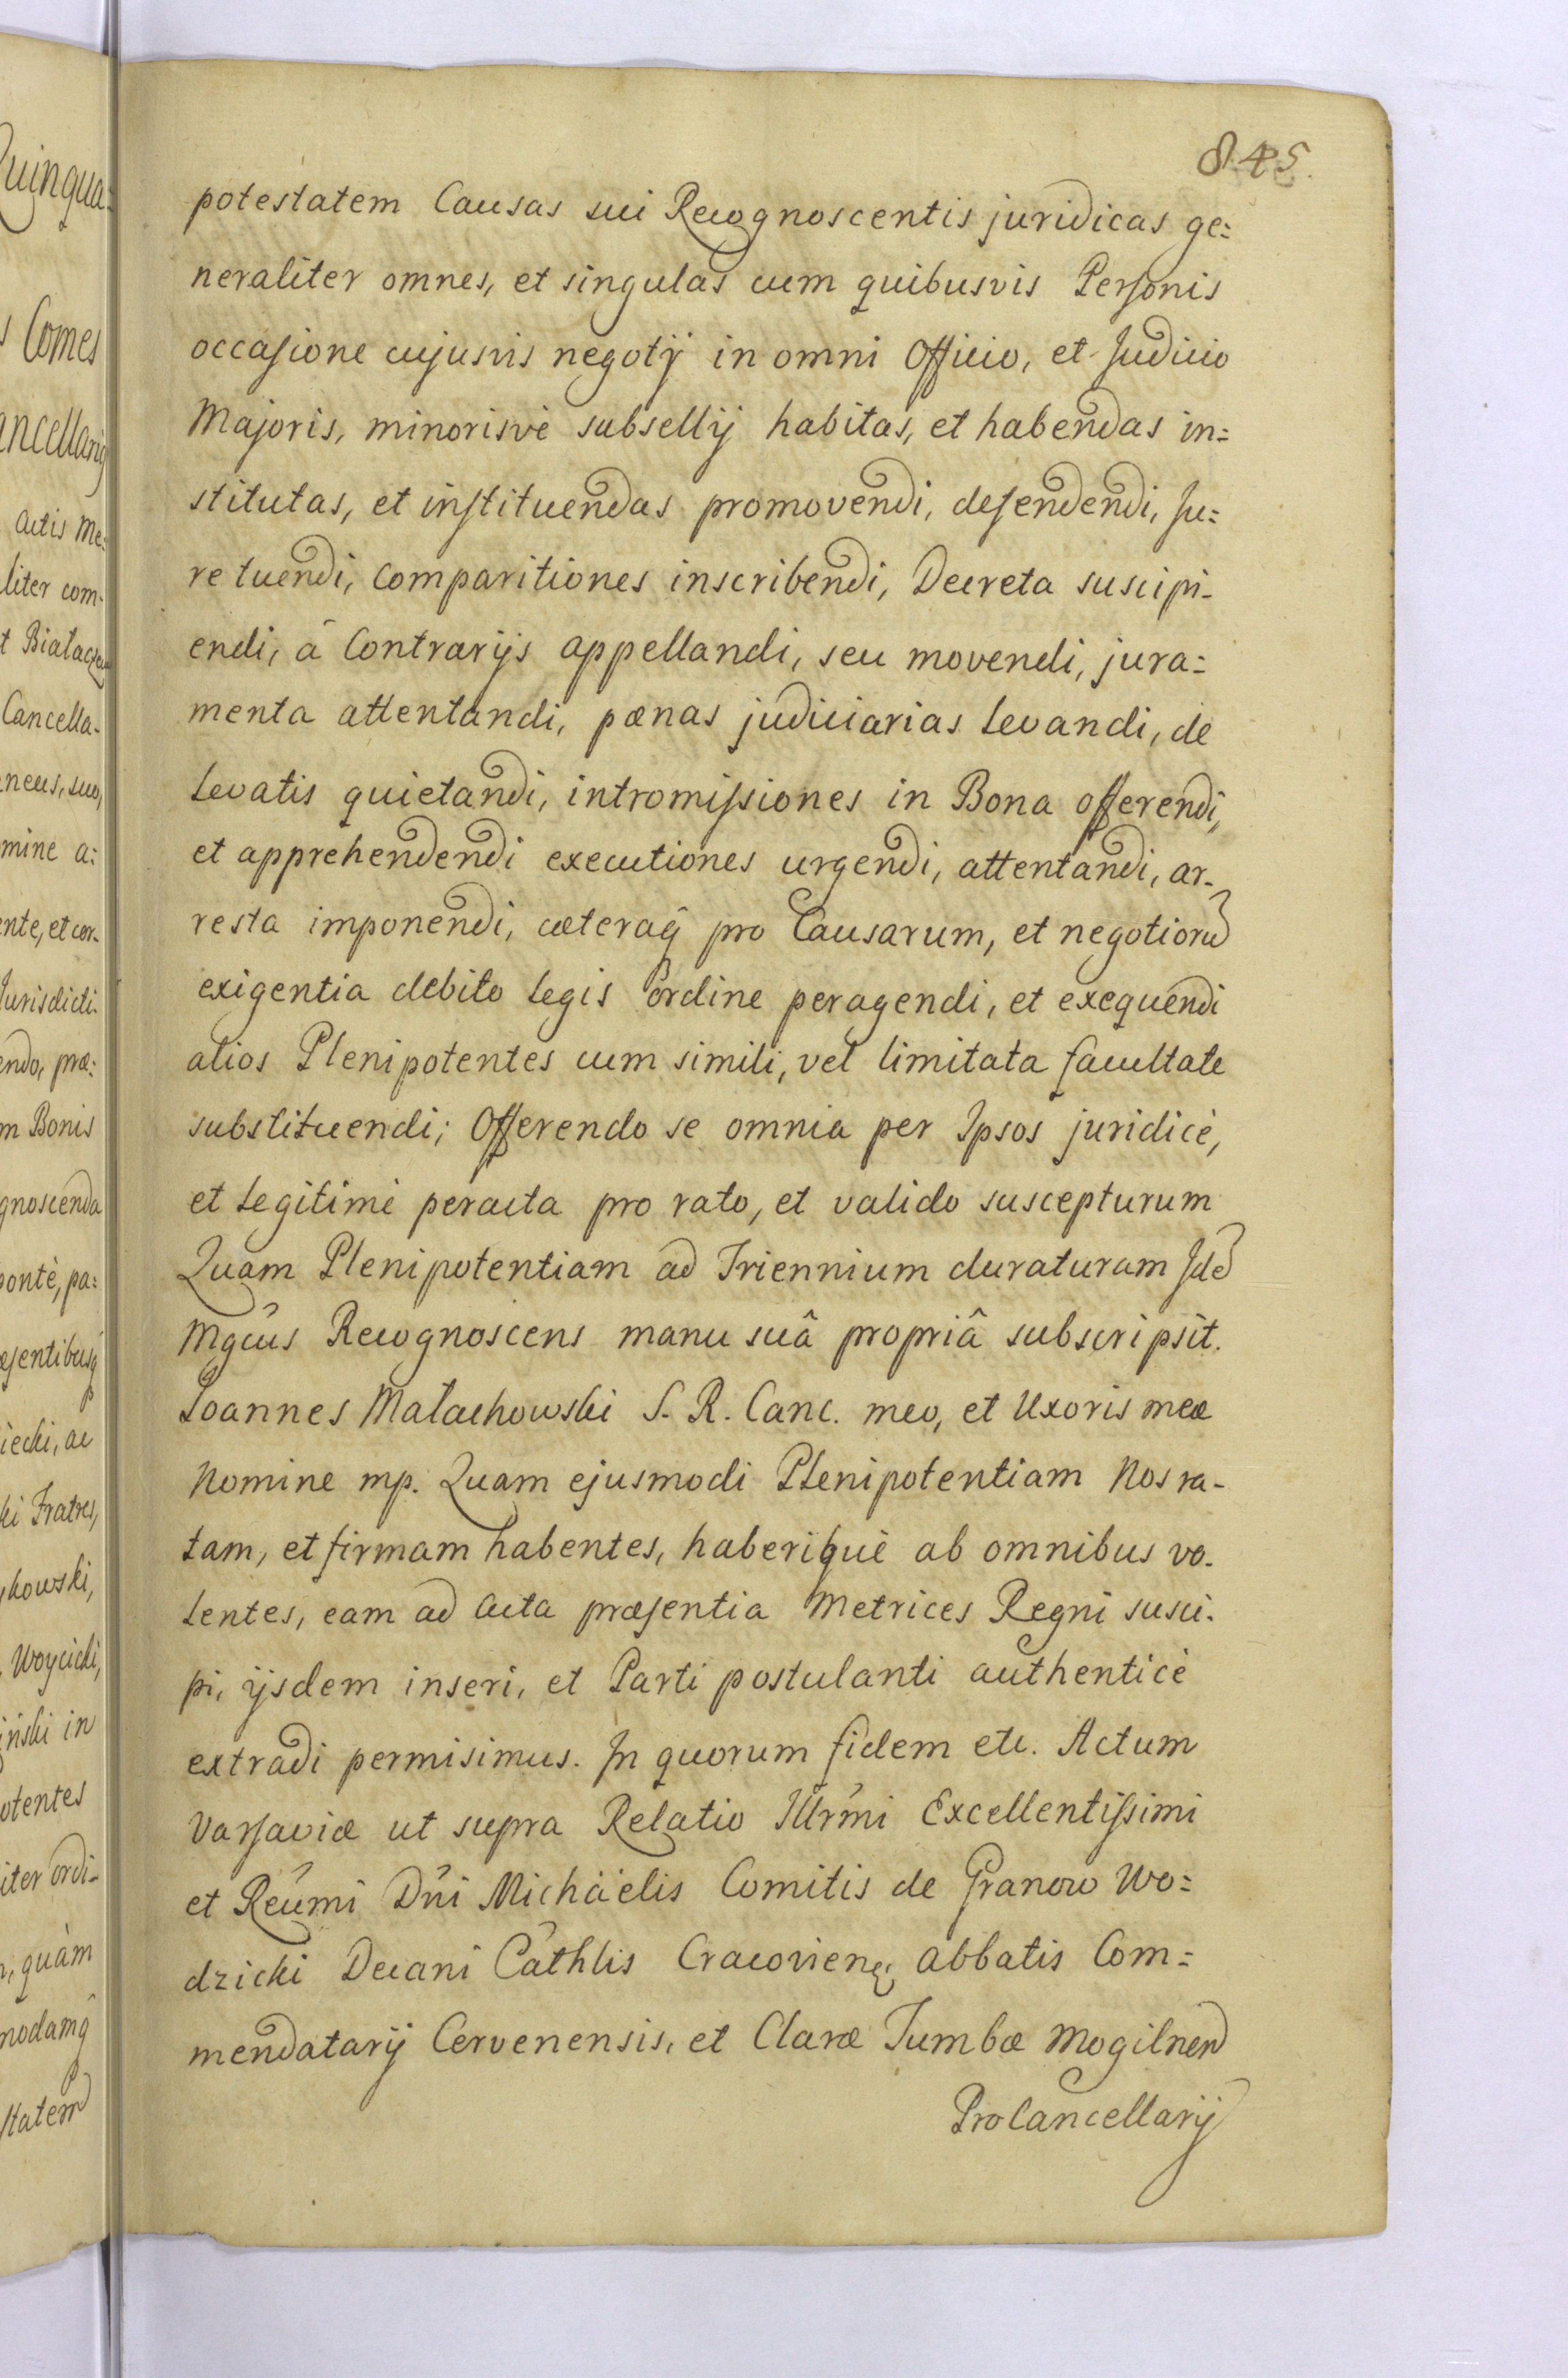 845.
potestatem Causas sui Recognoscentis juridicas ge:
neraliter omnes, et singulas cum quibusvis Personis
occasione cujusvis negotij in omni Officio, et Judicio
Majoris, minorisvè subsellij habitas, et habendas in:
stitutas, et instituendas promovendi, defendendi, Ju:
re tuendi, Comparitiones inscribendi, Decreta suscipi-
endi, à Contrarijs appellandi, seu movendi, jura:
menta attentandi, pænas judiciarias levandi, de
levatis quietandi, intromissiones in Bona offerendi,
et apprehendendi executiones urgendi, attentandi, ar-
resta imponendi, cæteraq̃ pro Causarum, et negotioru
exigentia debito Legis ordine peragendi, et exequendi
alios Plenipotentes cum simili, vel limitata facultate
substituendi; Offerendo se omnia per Ipsos juridicè,
et Legitimè peracta pro rato, et valido suscepturum
Quam Plenipotentiam ad Triennium duraturam Ide
Mgcus Recognoscens manu suâ propriâ subscripsit.
Joannes Małachowski S. R. Canc. meo, et Uxoris meæ
Nomine mp. Quam ejusmodi Plenipotentiam Nos ra-
tam, et firmam habentes, haberiquè ab omnibus vo-
lentes, eam ad Acta præsentia Metrices Regni susci-
pi, ijsdem inseri, et Parti postulanti authenticè
extradi permisimus. In quorum fidem etc. Actum
Varsaviæ ut supra Relatio Illrmi Excellentissimi
et Reumi Dni Michaelis Comitis de Granow Wo:
dzicki Decani Cathlis Cracovien, Abbatis Com:
mendatarij Cervenensis, et Claræ Tumbæ Mogilnen
ProCancellarij